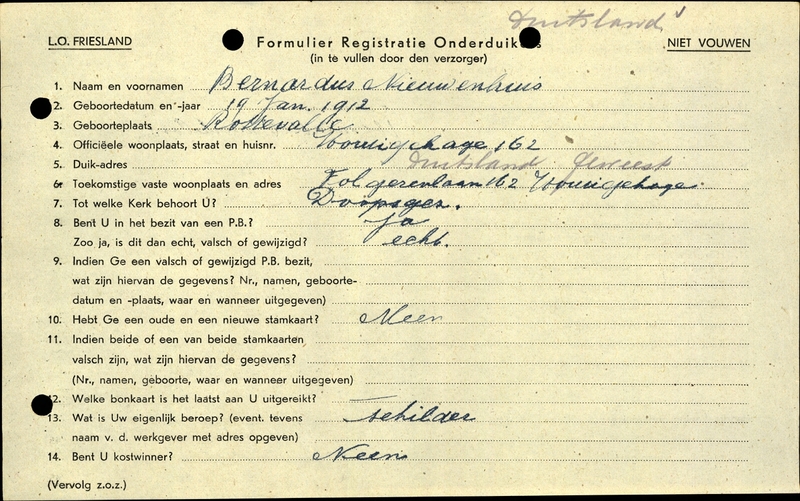 Duitsland
L.O. FRIESLAND
Formulier Registratie Onderduikers
NIET VOUWEN
(in te vullen door den verzorger)
1. Naam en voornamen Bernardus Nieuwenhuis
2. Geboortedatum en -jaar 19 Jan. 1912
3. Geboorteplaats Rottevalle
4. Officiëele woonplaats, straat en huisnr. 162
5. Duik-adres Duitsland geweest
6. Toekomstige vaste woonplaats en adres 162
7. Tot welke Kerk behoort U? Doopsgez.
8. Bent U in het bezit van een P.B.? ja
Zoo ja, is dit dan echt, valsch of gewijzigd? echt.
9. Indien Ge een valsch of gewijzigd P.B. bezit,
wat zijn hiervan de gegevens? Nr., namen, geboorte-
datum en -plaats, waar en wanneer uitgegeven)
10. Hebt Ge een oude en een nieuwe stamkaart? Neen
11. Indien beide of een van beide stamkaarten
valsch zijn, wat zijn hiervan de gegevens?
(Nr., namen, geboorte, waar en wanneer uitgegeven)
12. Welke bonkaart is het laatst aan U uitgereikt?
13. Wat is Uw eigenlijk beroep? (event. tevens schilder
naam v. d. werkgever met adres opgeven)
14. Bent U kostwinner? Neen
(Vervolg z.o.z.)